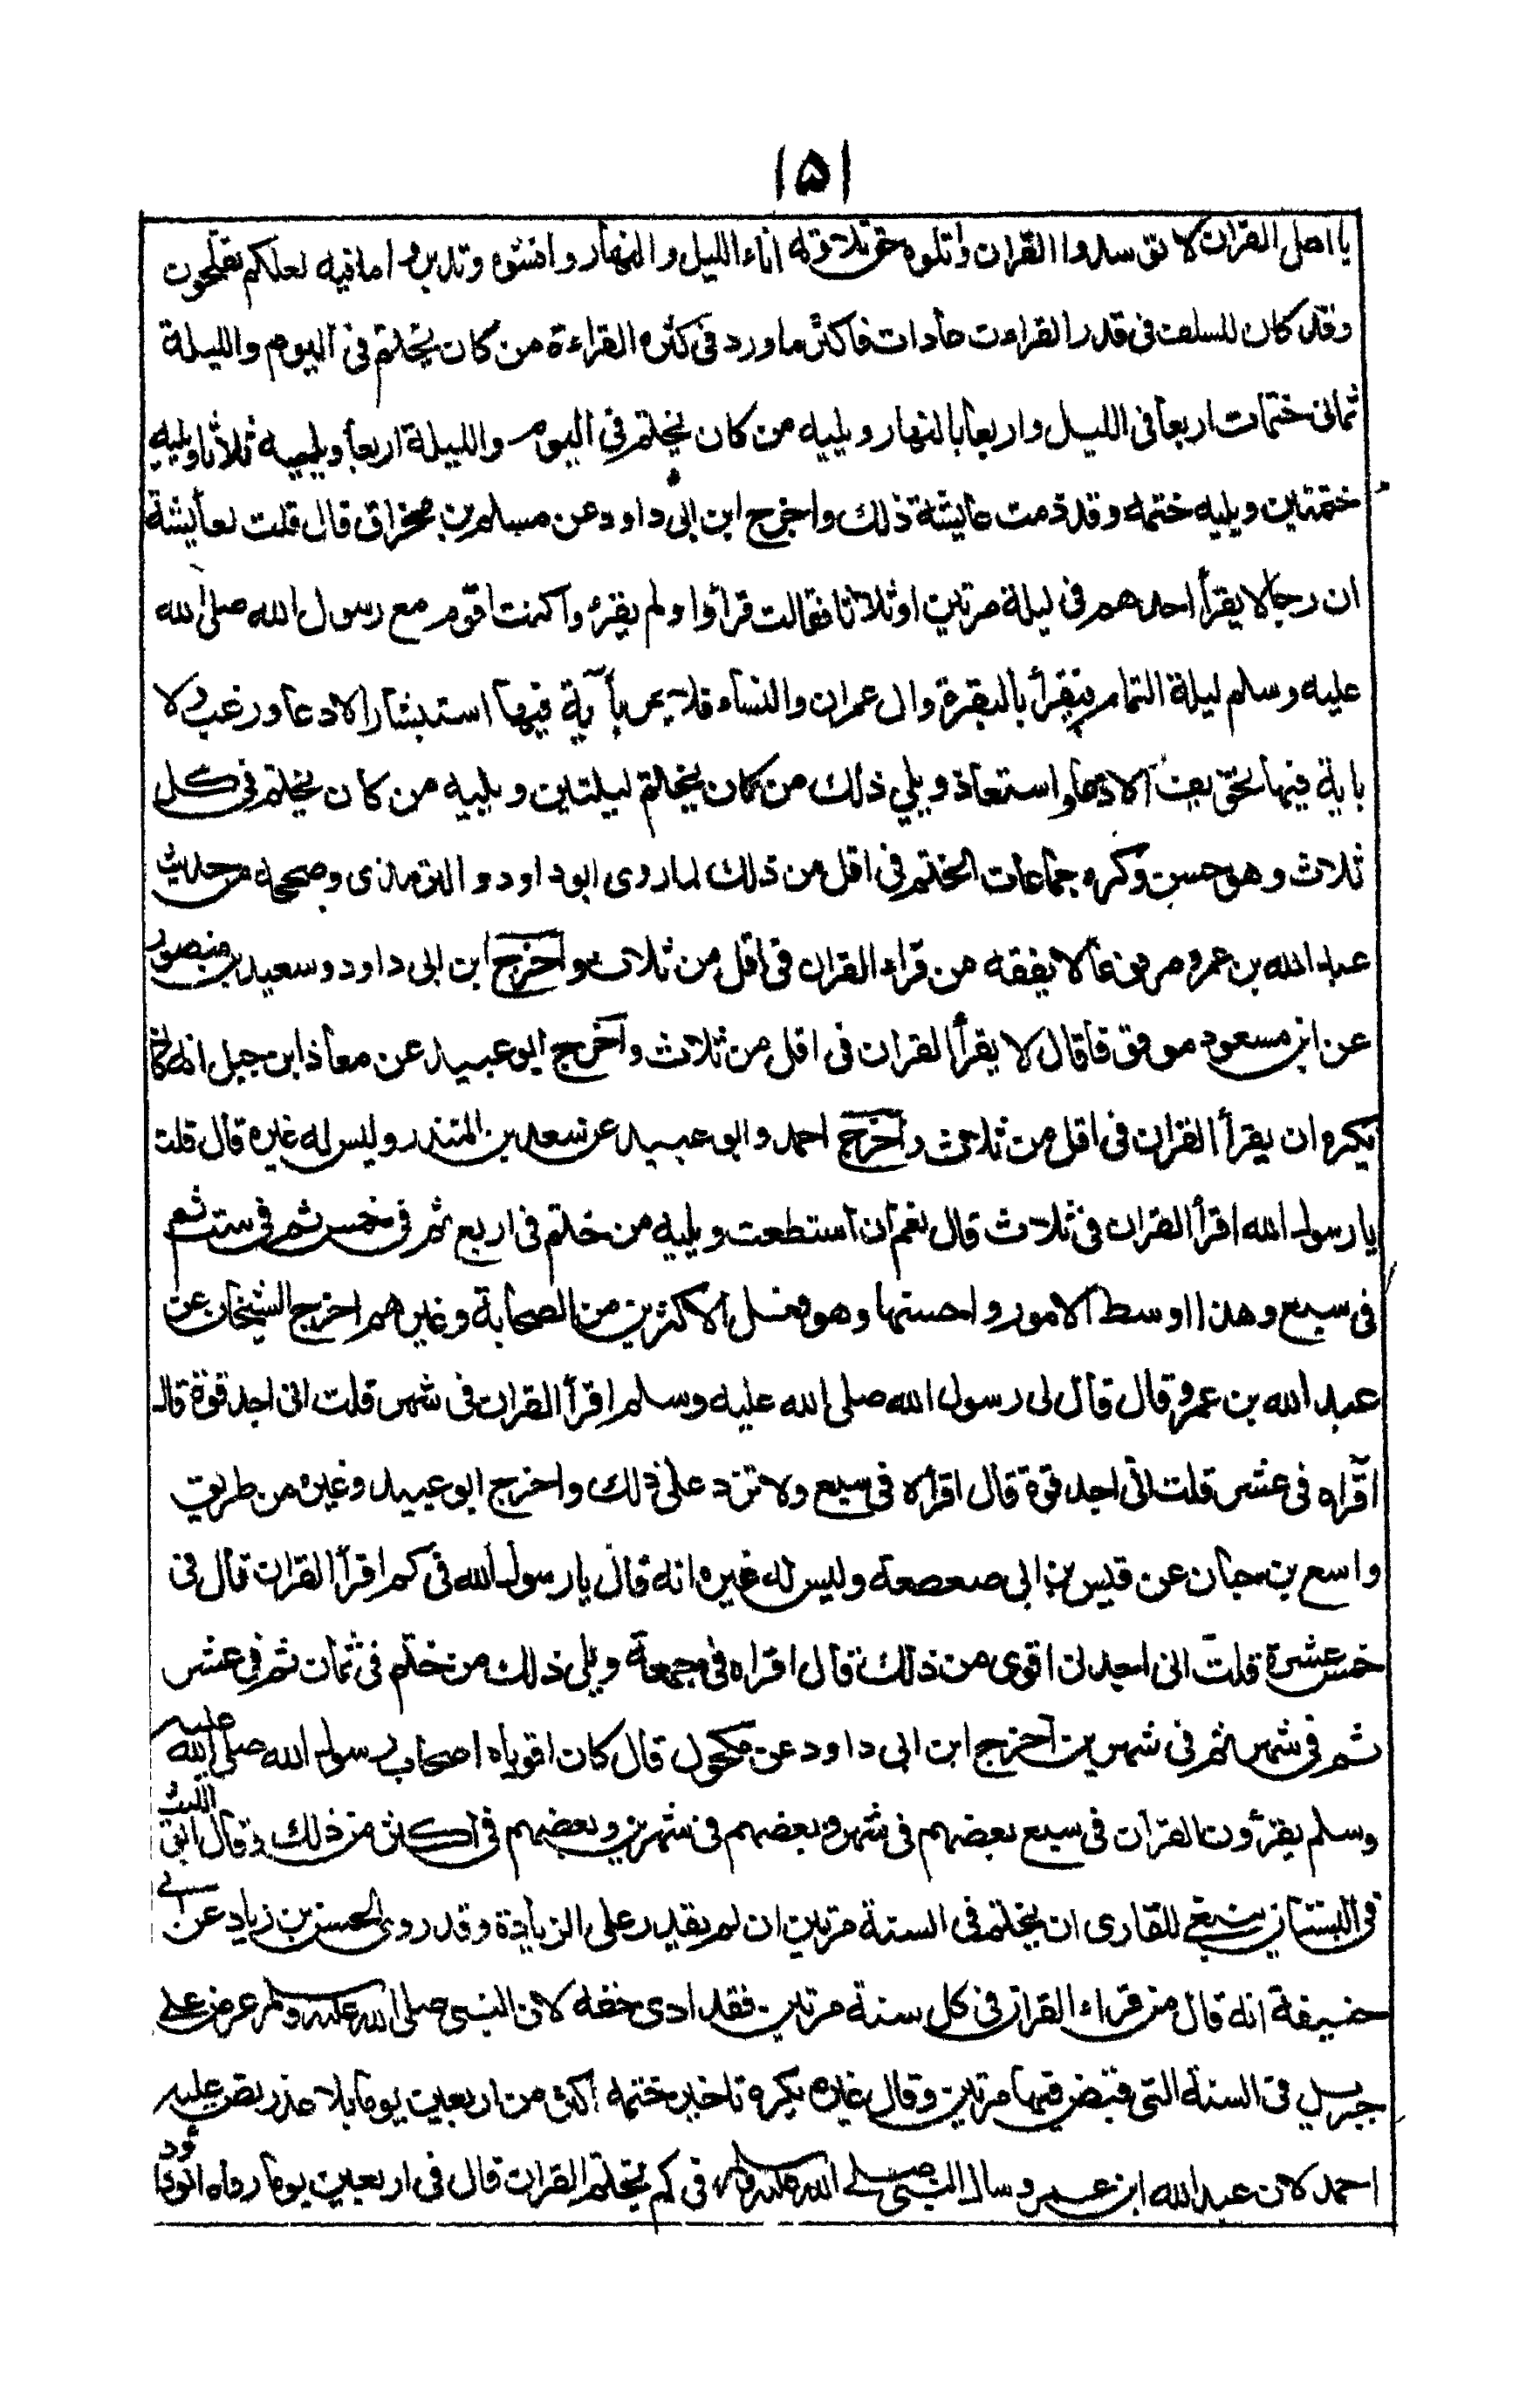 ١٥١
يا اهل القران لا توسدوا القران واتلوه حق تلاوته اناء الليل والنهار وافشوه وتدبروا ما فيه لعلكم تفلحون
وقد كان للسلف فى قدر القراءت عادات فاكثر ما ورد فى كثره القراءة من كان يختم فى اليوم والليلة
ثمانى ختمات اربعا فى الليل واربعا بالنهار ويليه من كان يختم فى اليوم والليلة اربعا ويليه ثلاثا ويليه
ختمتين ويليه ختمه وقد ذمت عايشة ذلك واخرج ابن ابى داود عن مسلم بن مخراق قال قلت لعايشة
ان رجالا يقرأ احدهم فى ليلة مرتين او ثلاثا فقالت قرأوا ولم يقرؤا كنت اقوم مع رسول الله صلى الله
عليه وسلم ليلة التمام فيقرأ بالبقرة وال عمران والنساء فلا يمر بآية فيها استبشار الا دعا ورغب ولا
باية فيها تخويف الا دعا واستعاذ ويلي ذلك من كان يختم ليلتين ويليه من كان يختم فى كل
ثلاث وهو حسن وكره جماعات الختم فى اقل من ذلك لما روى ابو داود والترمذى وصححه من حديث
عبد الله بن عمرو مرفوعا لا يفقه من قراء القران فى اقل من ثلاث واخرج ابن ابى داود وسعيد بن منصور
عن ابن مسعود موقوفا قال لا يقرأ القران فى اقل من ثلاث واخرج ابو عبيد عن معاذ ابن جبل انه كان
يكره ان يقرأ القران فى اقل من ثلاث واخرج احمد وابو عبيد عن سعد بن المنذر وليس له غيره قال قلت
يا رسول الله اقرأ القران فى ثلاث قال نعم ان استطعت ويليه من ختم فى اربع ثم فى خمس ثم فى ست ثم
فى سبع وهذا اوسط الامور واحسنها وهو فعل الاكثرين من الصحابة وغيرهم اخرج الشيخان عن
عبد الله بن عمرو قال قال لى رسول الله صلى الله عليه وسلم اقرأ القران فى شهر قلت انى اجد قوة قال
اقرأه فى عشر قلت انى اجد قوة قال اقرأه فى سبع ولا تزد على ذلك واخرج ابو عبيد وغيره من طريق
واسع بن حبان عن قيس بن ابى صعصعة وليس له غيره انه قال يا رسول الله فى كم اقرأ القران قال فى
خمس عشرة قلت انى اجدنى اقوى من ذلك قال اقراه فى جمعة ويلى ذلك من ختم فى ثمان ثم فى عشر
ثم فى شهر ثم فى شهرين اخرج ابن ابى داود عن مكحول قال كان اقوياء اصحاب رسول الله صلى الله عليه
وسلم يقرؤن القران فى سبع بعضهم فى شهر وبعضهم فى شهرين وبعضهم فى اكثر من ذلك وقال ابو الليث
فى البستان ينبغى للقارى ان يختم فى السنة مرتين ان لم يقدر على الزيادة وقد روى الحسن بن زياد عن ابى
حنيفة انه قال من قراء القران فى كل سنة مرتين فقد ادى حقه لان النبى صلى الله عليه وسلم عرض على
جبريل فى السنة التى قبض فيها مرتين وقال غيره يكره تاخير ختمه اكثر من اربعين يوما بلا عذر نص عليه
احمد لان عبد الله ابن عمرو سال النبى صلى الله عليه وسلم فى كم يختم القران قال فى اربعين يوما رواه ابو داود